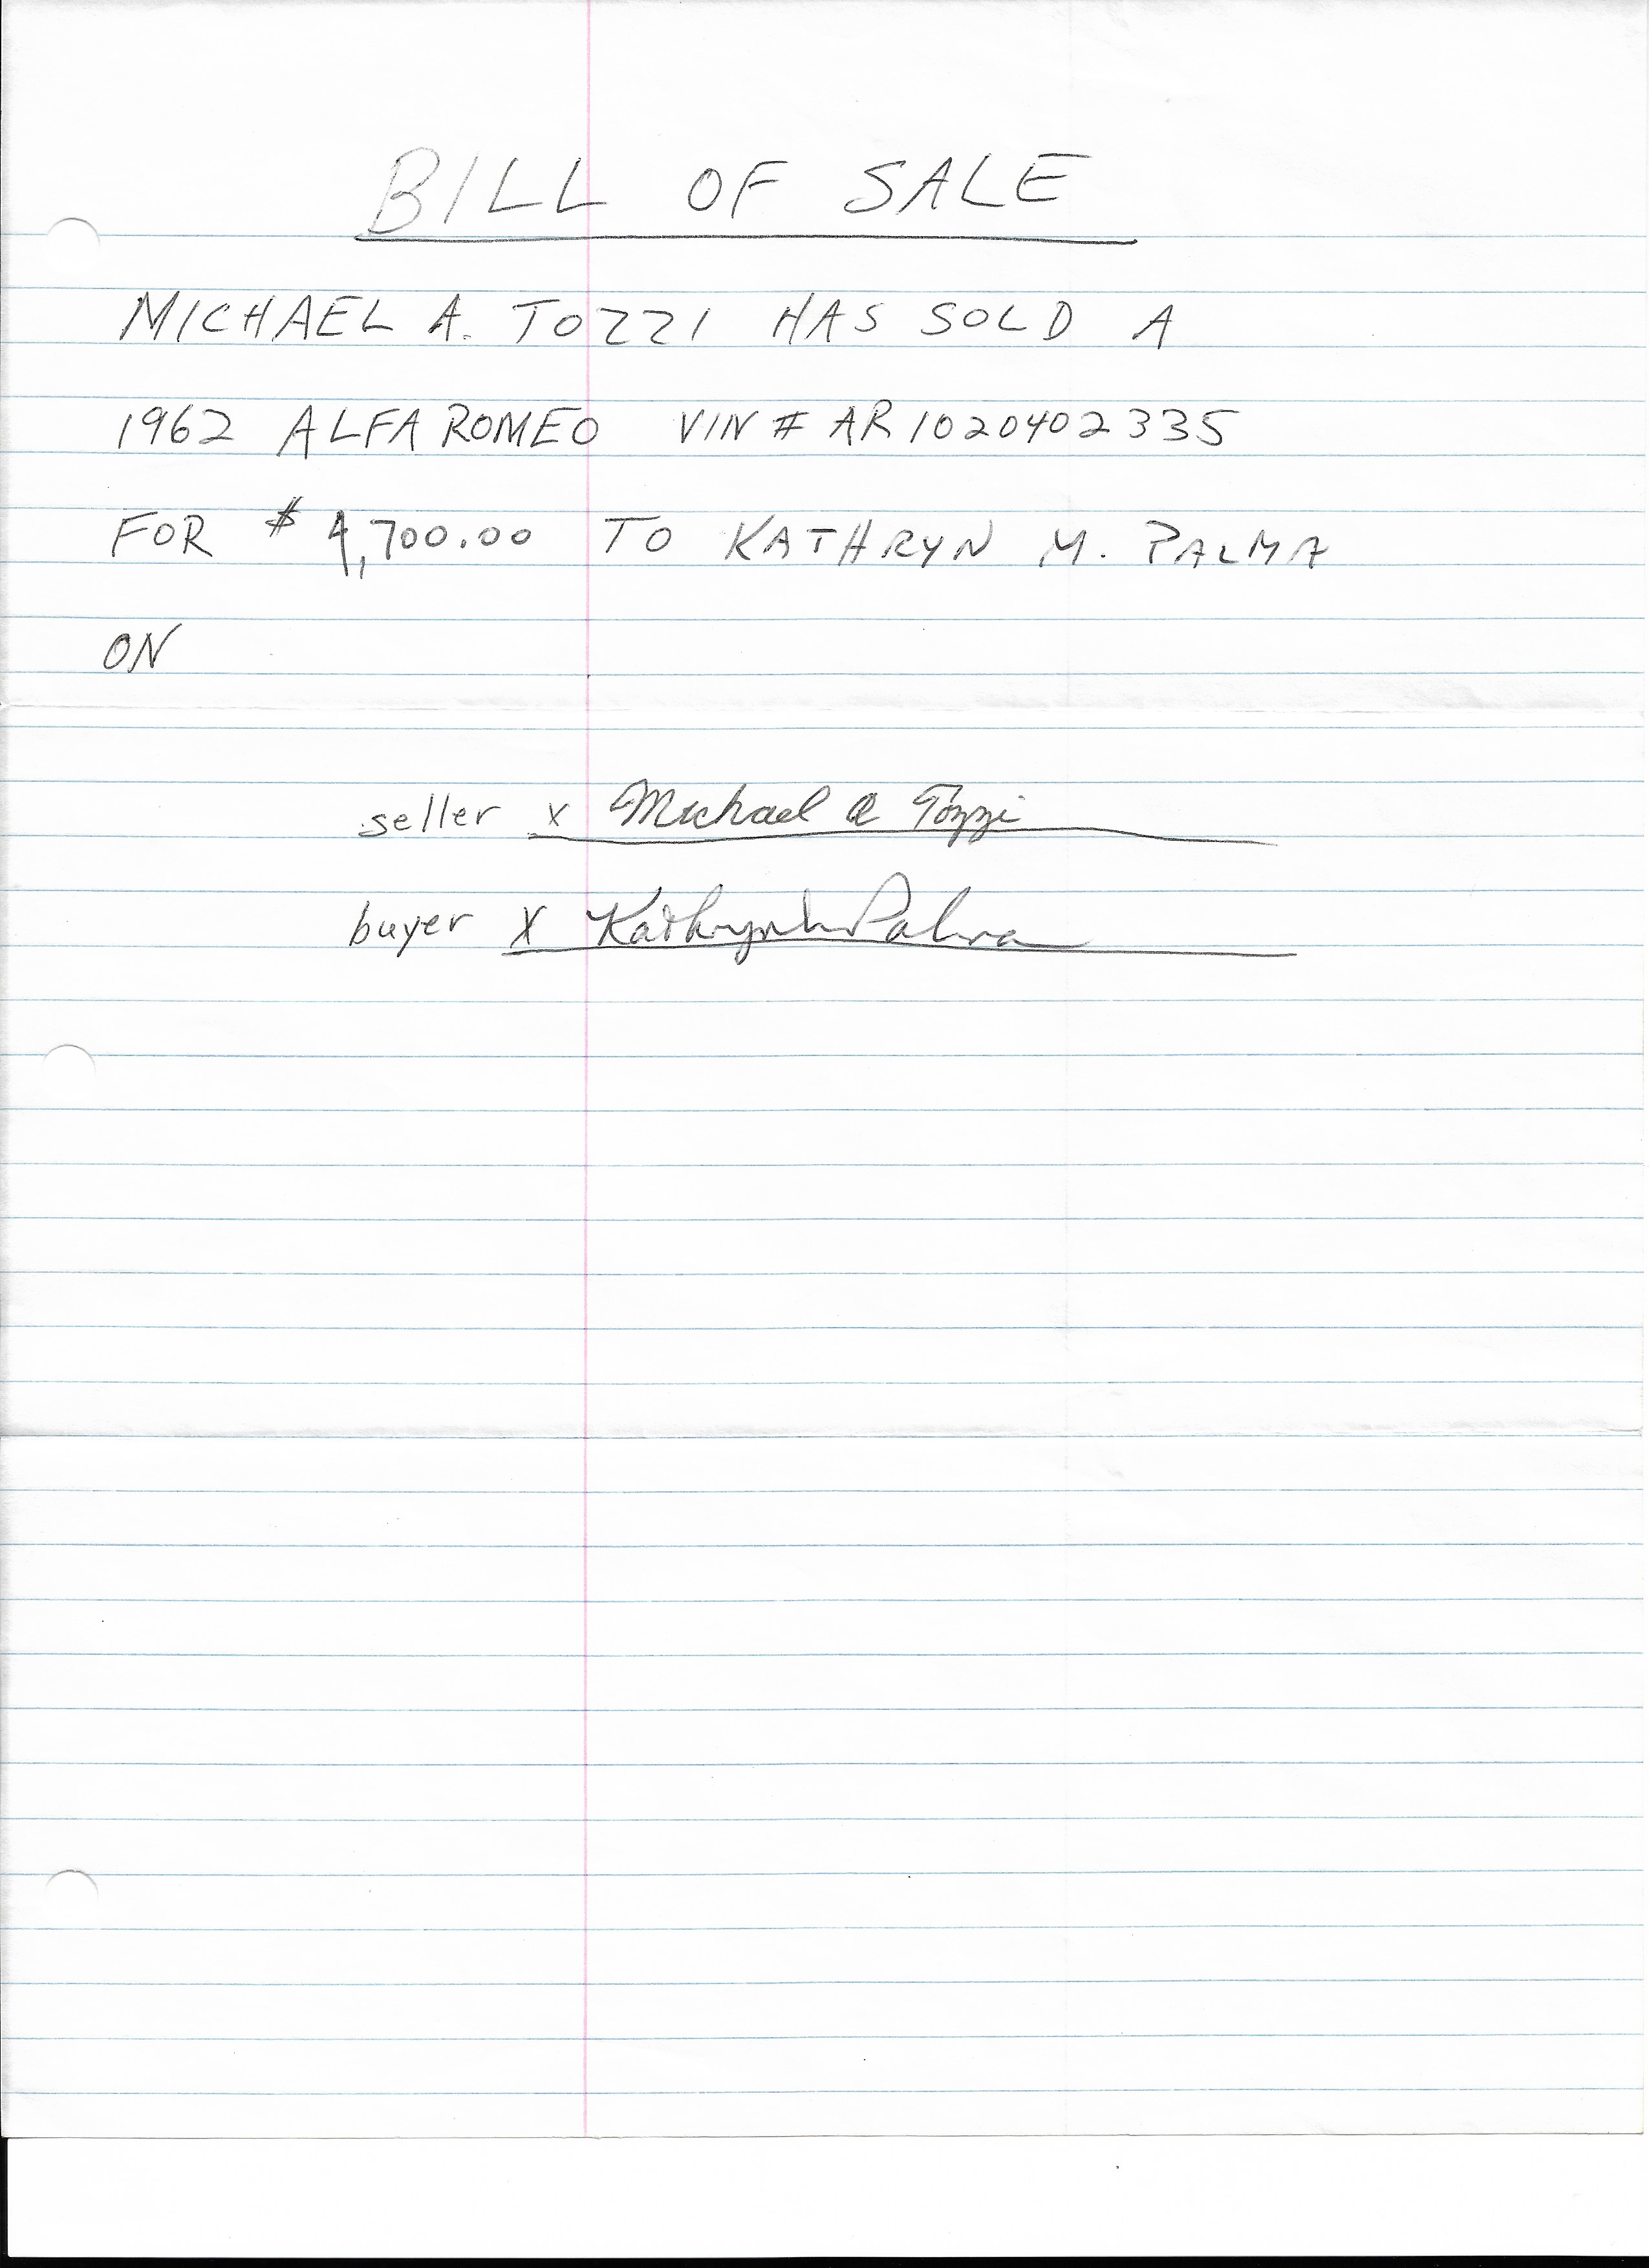 BILL OF SALE
MICHAEL A. TOZZI HAS SOLD A
1962 ALFA ROMEO VIN # AR1020402335
FOR $4,700.00 TO KATHRYN M. PALMA
ON
seller x Michael A Tozzi
buyer X Kathryn M Palma